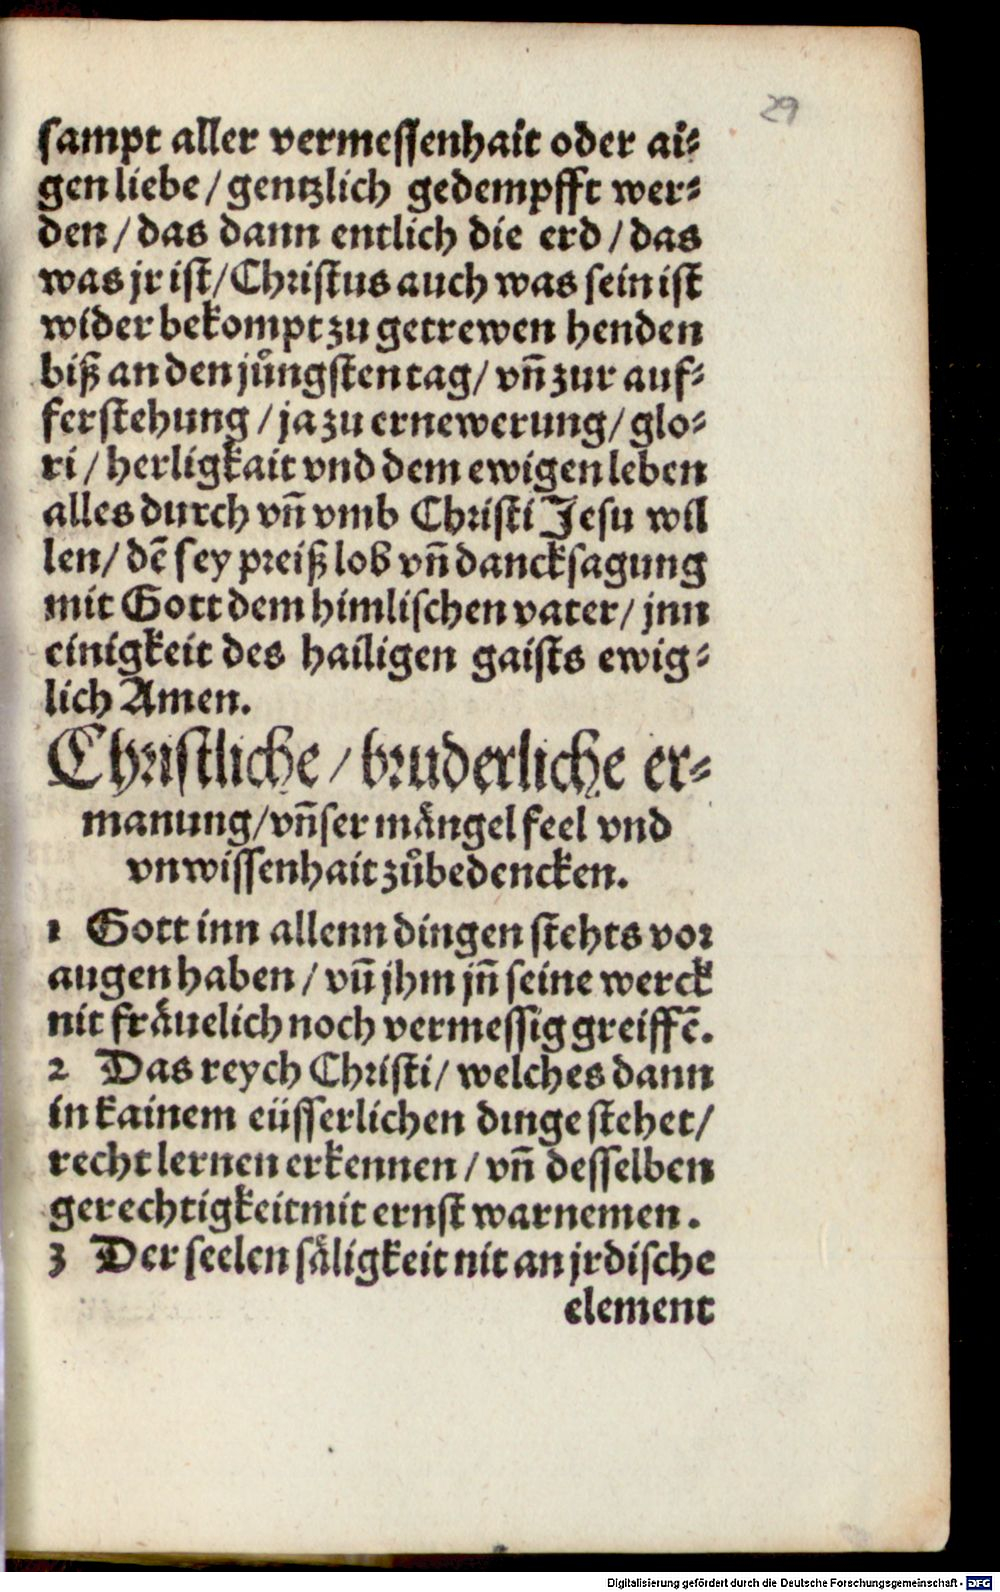 29
sampt aller vermessenhait oder ai⸗
gen liebe / gentzlich gedempfft wer⸗
den / das dann entlich die erd / das
was jr ist / Christus auch was sein ist
wider bekompt zu getrewen henden
biß an den jůngsten tag / vñ zur auf⸗
ferstehung / ja zu ernewerung / glo⸗
ri / herligkait vnd dem ewigen leben
alles durch vñ vmb Christi Jesu wil
len / dē sey preiß lob vñ dancksagung
mit Gott dem himlischen vater / jnn
einigkeit des hailigen gaists ewig⸗
lich Amen.
Christliche / bruderliche er⸗
manung / vñser mängel feel vnd
vnwissenhait zůbedencken.
1 Gott inn allenn dingen stehts vor
augen haben / vñ jhm jñ seine werck
nit fräuelich noch vermessig greiffē.
2 Das reych Christi / welches dann
in kainem eüsserlichen dinge stehet /
recht lernen erkennen / vñ desselben
gerechtigkeit mit ernst warnemen.
3 Der seelen säligkeit nit an jrdische
element
Digitalisierung gefördert durch die Deutsche Forschungsgemeinschaft - DFG